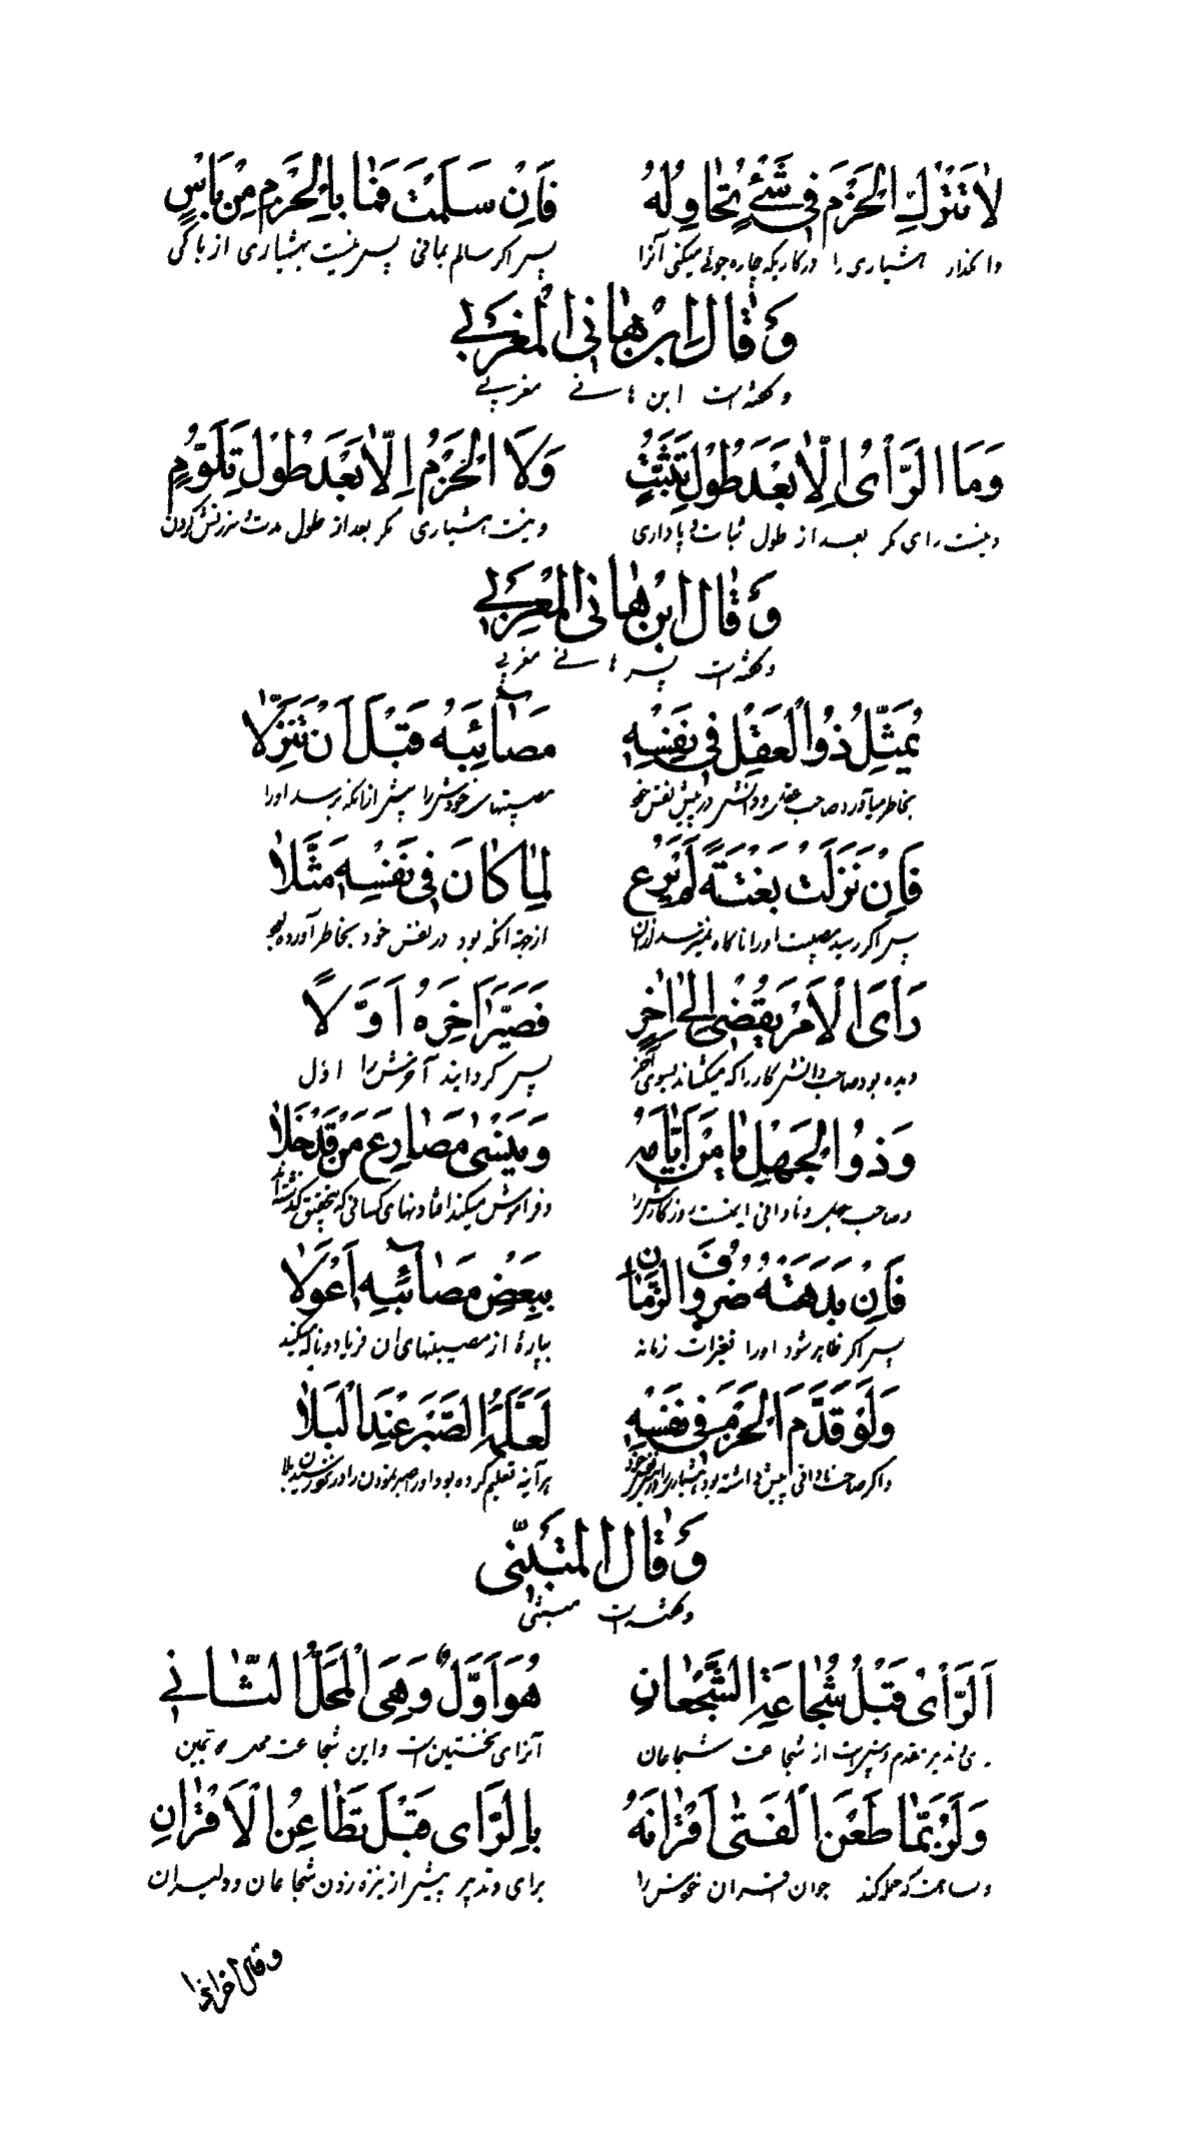 لٰا تَتْرُكِ الْحَزْمَ فِي شَئْءٍ تُحٰاوِلُهُ فَاِنْ سَلِمْتَ فَمٰا بِالْحَزْمِ مِنْ بَاْسٍ
وامگذار هشیاری را در کاریکه چاره جوئی میکنی آنرا پس اگر سالم بمانی پس نیست بهشیاری از باکی
وَ قٰالَ ابْنُ هٰانِی الْمَغْرِبِي
و گفته است ابن هانے مغربے
وَمَا الرَّاْیُ اِلّٰا بَعْدَ طُوْلِ تَثَبُّتٍ وَلَا الْحَزْمُ اِلّٰا بَعْدَ طُوْلِ تَلَوُّمٍ
و نیست رای مگر بعد از طول ثبات و پاداری و نیست هشیاری مگر بعد از طول مدت سرزنش کردن
وَ قٰالَ ابْنُ هٰانِی الْمَغْرِبِي
و گفته است پسر هانے مغربے
يُمَثِّلُ ذُوالْعَقْلِ فِي نَفْسِهِ مَصٰآئِبَهُ قَبْلَ اَنْ تَنْزِلٰا
بخاطر میآورد صاحب عقل و دانش در پیش نفس خود مصیبتهای خودش را پیش از آنکه برسد او را
فَاِنْ نَزَلَتْ بَغْتَةً لَمْ يُرَعْ لِمٰا كٰانَ فِي نَفْسِهِ مَثَّلٰا
پس اگر رسید مصیبت او را ناگاه نمیترسد از آن از جهة آنکه بود در نفس خود بخاطر آورده بود
رَاَی الْاَمْرَ يُفْضِي اِلیٰ اٰخِرٍ فَصَيَّرَ اٰخِرَهُ اَوَّلاً
دیده بود صاحب دانش کار را که میکشاند بسوی آخر پس گردانید آخرش را اول
وَذُوا لْجَهْلِ يَأْمَنُ اَيّٰامَهُ وَيَنْسیٰ مَصٰارِعَ مَنْ قَدْ خَلٰا
و صاحب جهل و نادانی ایمن است روزگارش را و فراموش میکند افتادنهای کسانی که بتحقیق گذشته‌اند
فَاِنْ بَدَهَتْهُ صُرُوفُ الزَّمٰانِ بِبَعْضِ مَصٰآئِبِهِ اَعْوَلٰا
پس اگر ظاهر شود او را تغیرات زمانه بپارهٔ از مصیبتهای آن فریاد و ناله میکند
وَلَوْ قَدَّمَ الْحَزْمَ فِي نَفْسِهِ لَعَلَّمَهُ الصَّبْرَ عِنْدَ الْبَلٰا
و اگر صاحب نادانی پیش داشته بود هشیاری را در نفس خود هر آینه تعلیم کرده بود او را صبر نمودن را در نزد بلا
وَ قٰالَ الْمُتَنَبّي
و گفته است متنبّی
اَلرَّاْیُ قَبْلَ شُجٰاعَةِ الشُّجْعٰانِ هُوَ اَوَّلٌ وَهِيَ الْمَحَلُّ الثّٰانِي
رای و تدبیر مقدم و پیش است از شجاعت شجاعان آنرای نخستین است و این شجاعت محل دویمین
وَلَرُبَّمٰا طَعَنَ الْفَتیٰ اَقْرٰانَهُ بِالرَّاْیِ قَبْلَ تَطٰاعُنِ الْاَقْرٰانِ
و بسا هست که حمله کند جوان قران خویش را برای و تدبیر پیش از نیزه زدن شجاعان و دلیران
وقال آخر ایضا